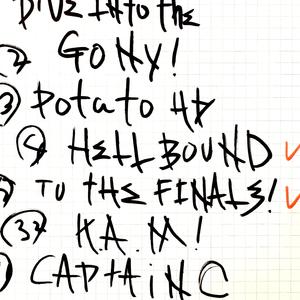 DIVE INTO the
② GO NY!
③ Potato HA
④ HELLBOUND ✓
TO tHE FINALS! ✓
KA.M!
CAPTAIN C